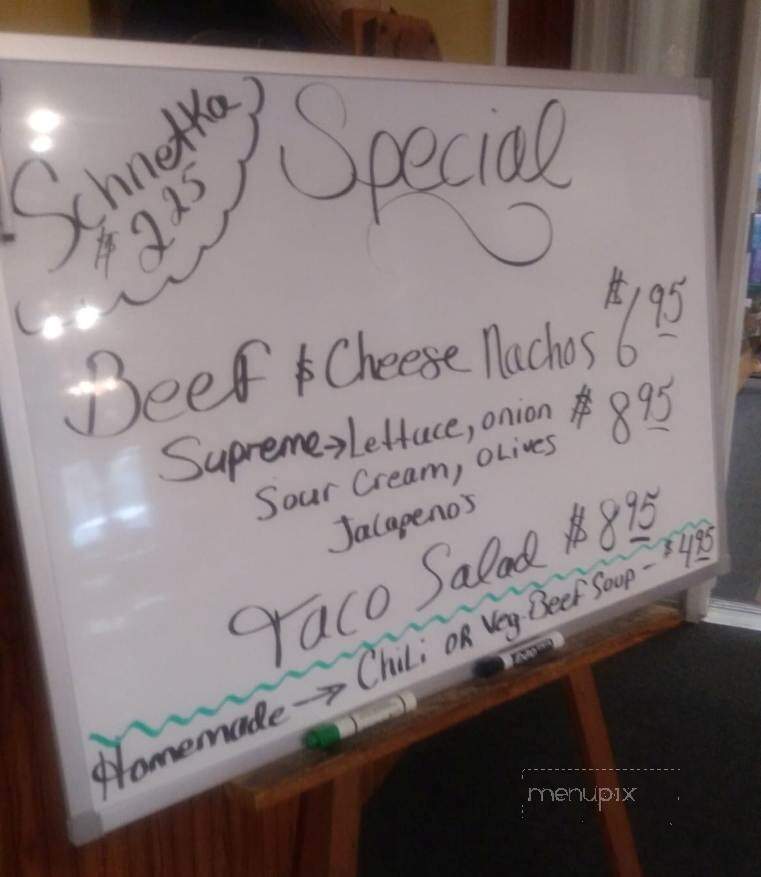 Schnetka
$2.25
Special
Beef & Cheese Nachos $6.95
Supreme→Lettuce, onion $8.95
Sour Cream, Olives
Jalapeno's
Taco Salad $8.95
Homemade → Chili OR Veg. Beef Soup - $4.95
menupix